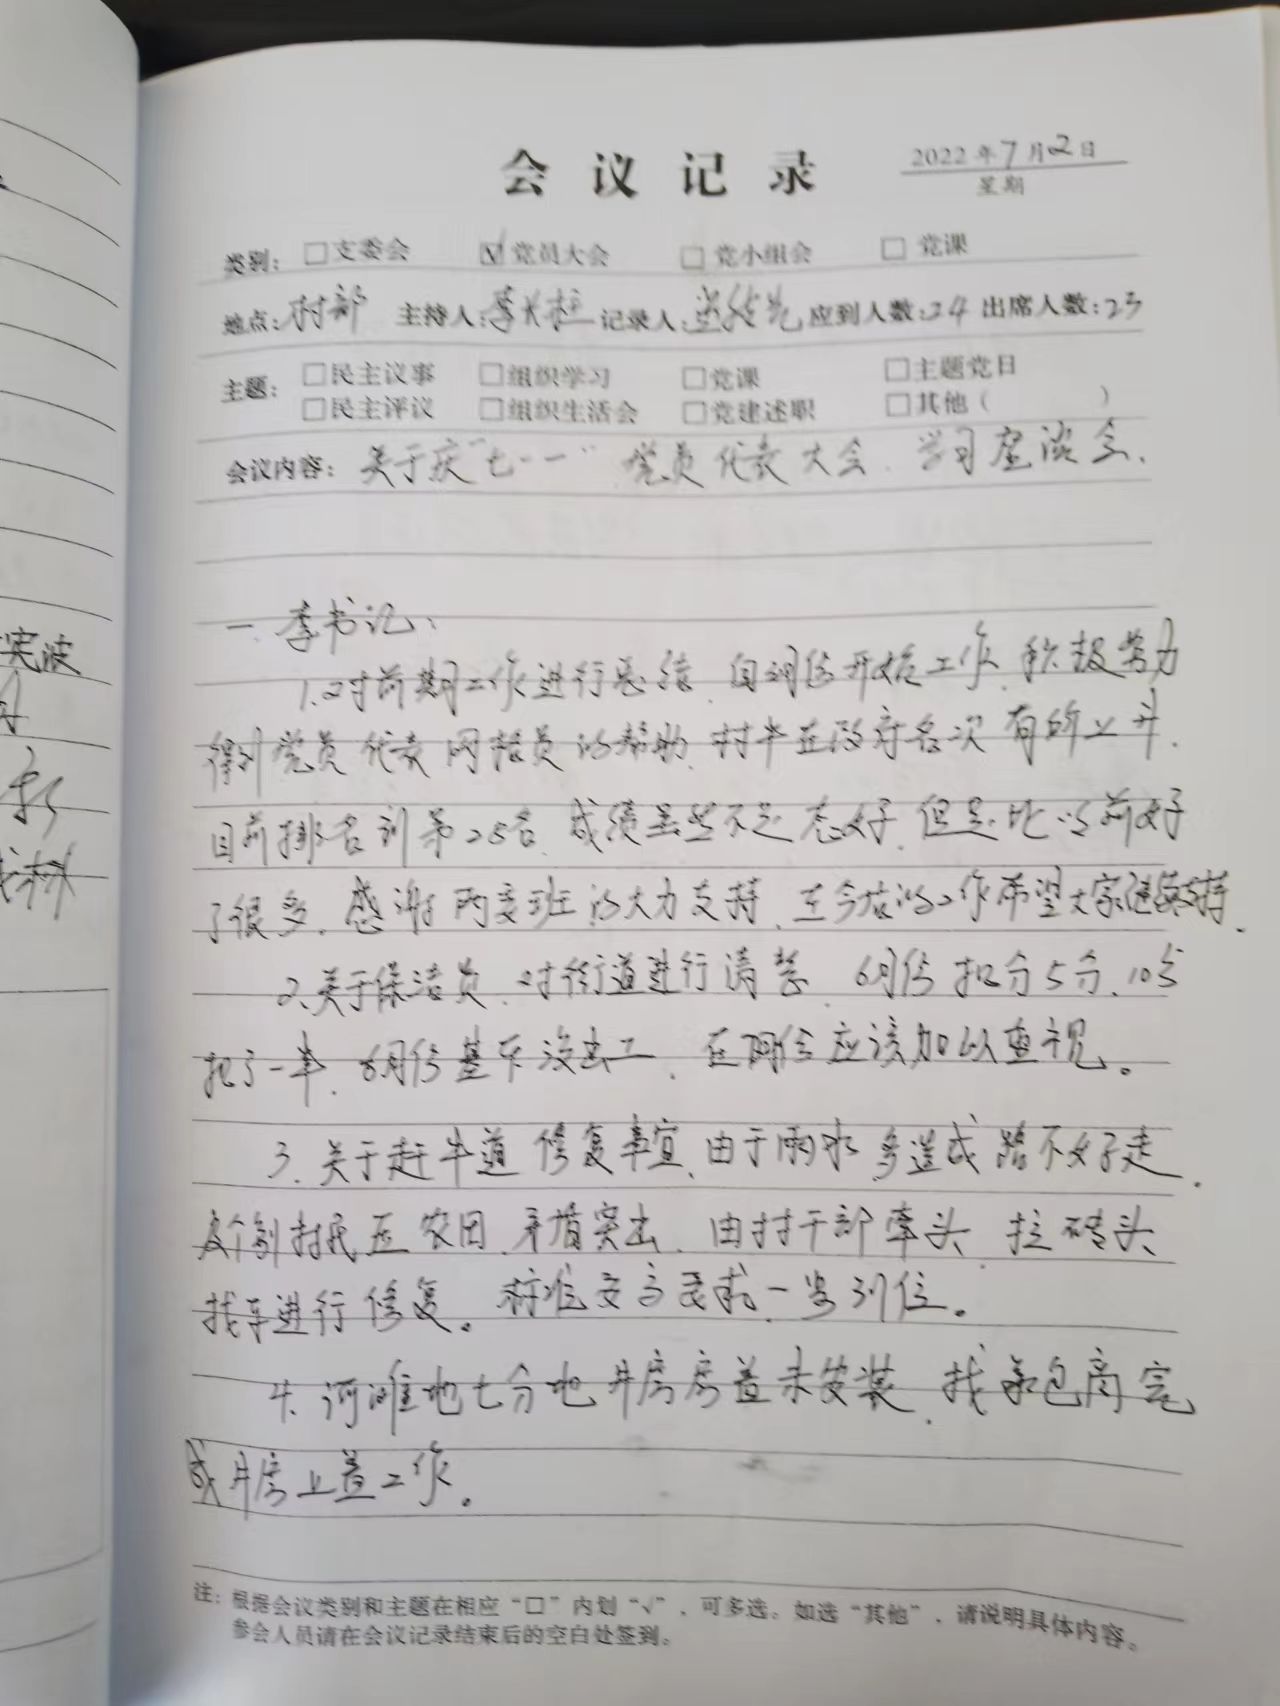 宪波
会议记录
2022年7月2日
星期
类别: □支委会 ☑党员大会 □党小组会 □党课
地点:村部 主持人:李长柱 记录人: 应到人数:24 出席人数:23
主题: □民主议事 □组织学习 □党课 □主题党日
□民主评议 □组织生活会 □党建述职 □其他( )
会议内容: 关于庆"七·一" 党员代表大会、学习座谈会、
一、李书记:
1.对前期工作进行总结、自 开始工作、积极努力
得到党员代表网格员的帮助、村 在政府名次有所上升、
目前排名到第25名、成绩虽然不是太好、但是比以前好
了很多、感谢两委班的大力支持、在今后的工作希望大家继续支持、
2、关于保洁员、对街道进行清整、6月份扣分5分、10分
扣了一半、6月份基本没出工、在 应该加以重视。
3、关于赶牛道修复事宜、由于雨水多造成路不好走、
个别村民压农田、矛盾突出、由村干部牵头、拉砖头
找车进行修复。标准 要求一步到位。
4、河滩地七分地井房房盖未安装、找承包商完
成井房上盖工作。
注: 根据会议类别和主题在相应“□”内划“√”,可多选。如选“其他”,请说明具体内容。
参会人员请在会议记录结束后的空白处签到。